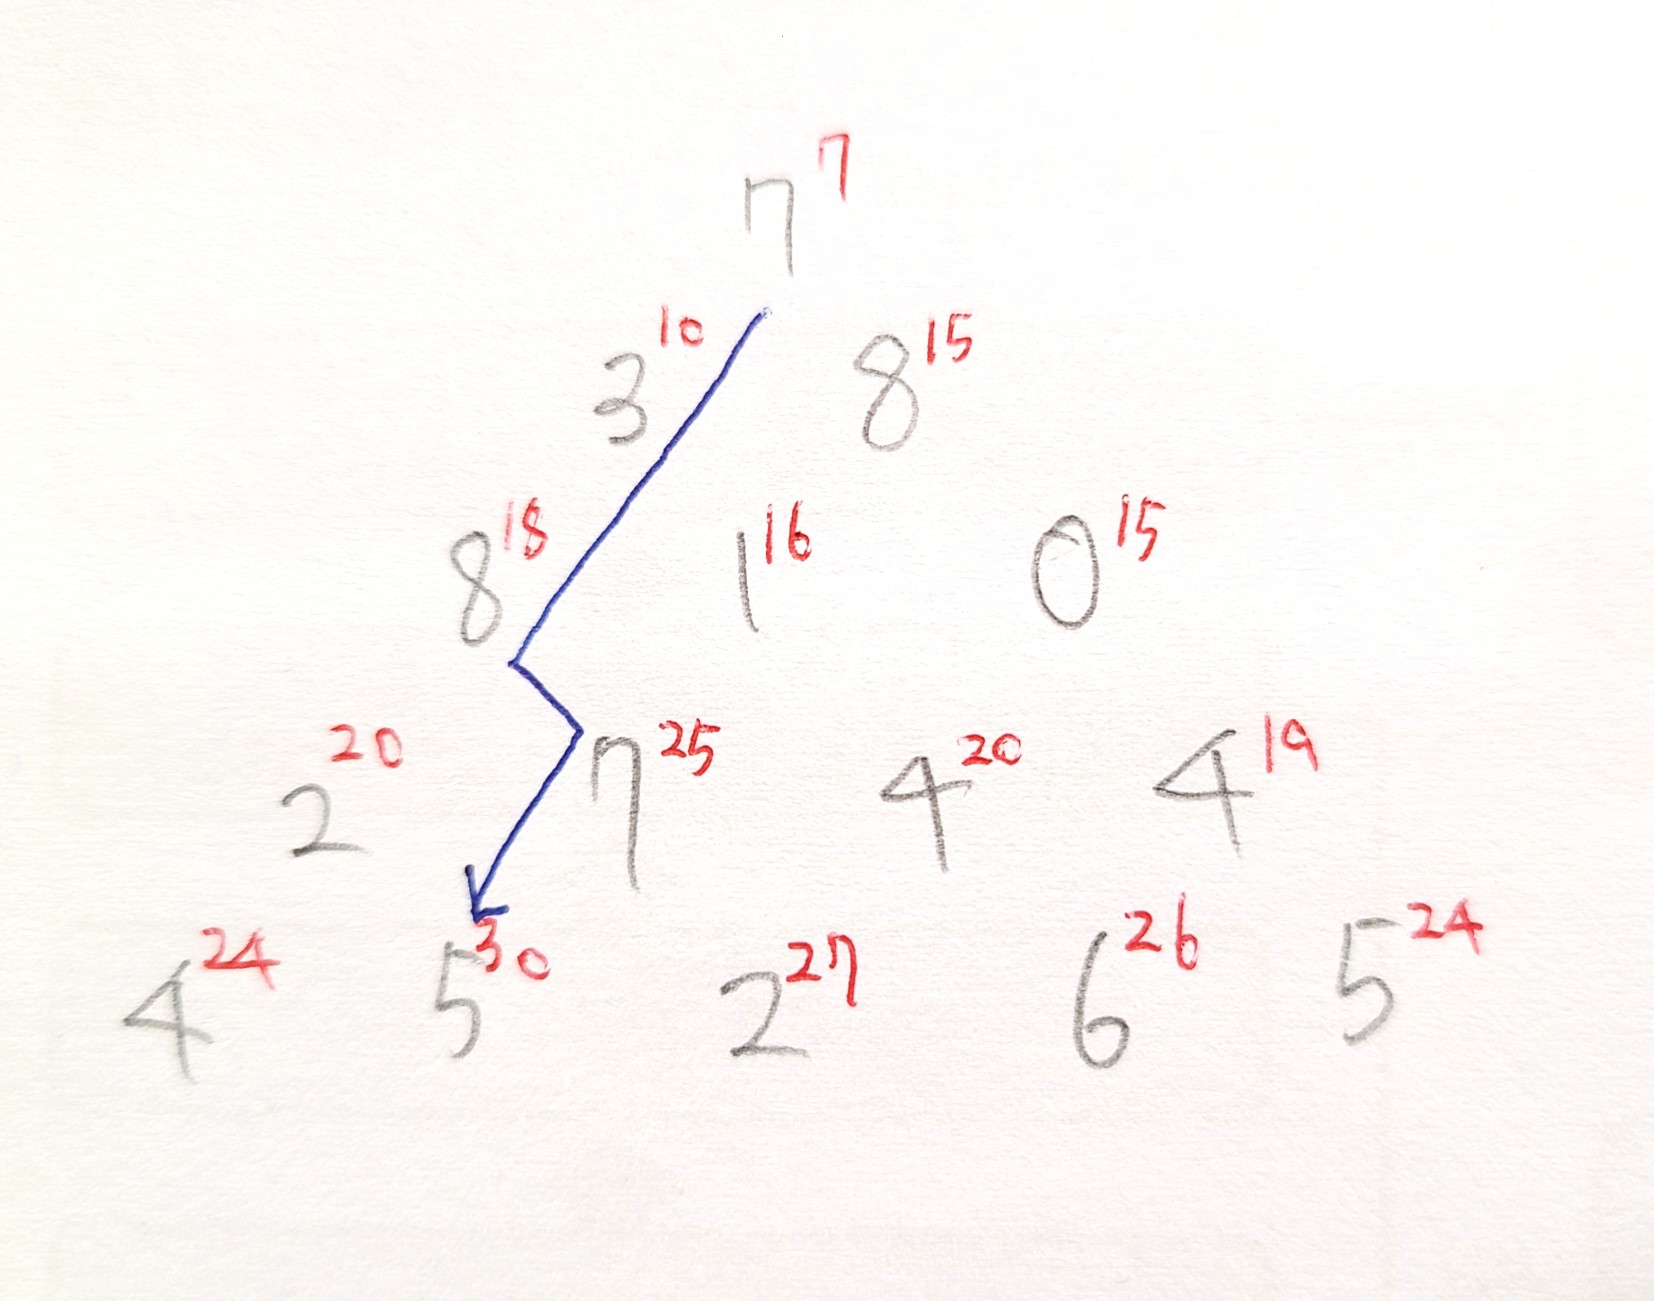 7 7
3 10 8 15
8 18 1 16 0 15
2 20 7 25 4 20 4 19
4 24 5 30 2 27 6 26 5 24